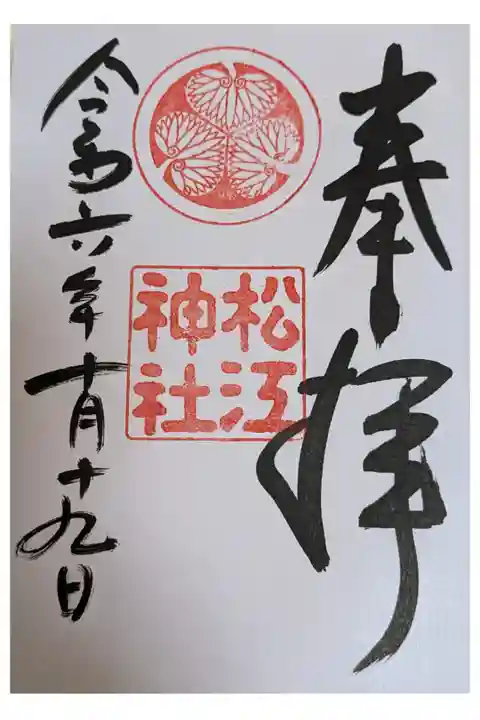 奉拝
松江
神社
令和六年十月十九日